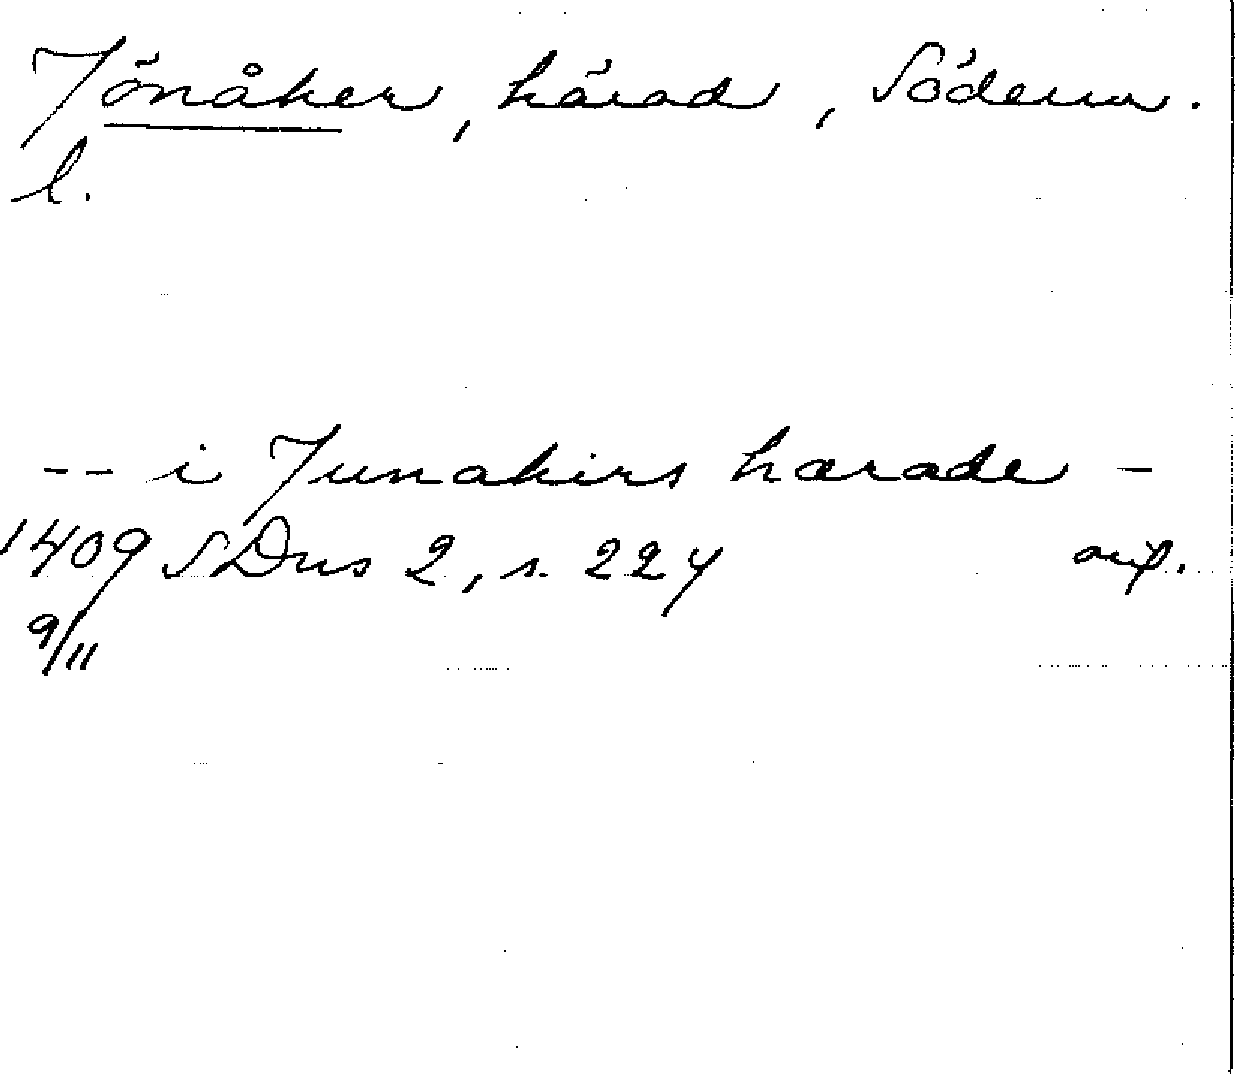 Jönåker, härad, Söderm.
l.
-- i Junakirs harade -
1409 SDns 2, s. 224 orig.
9/11